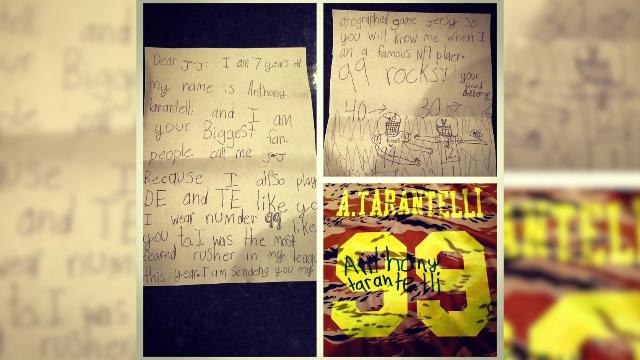 Dear J-J: I am 7 years old
my name is Anthony
tarantelli and I am
your Biggest fan
people call me J-J
Because I allso play
DE and TE like yo
I wear numder 99 like
you to. I was the most
feared rusher in my leag
this year. I am Sendens you my
atographed game Jersy So
you will know me when I
am a famous Nfl plaer.
99 rocks! your
friend
Anthony
40 30
A.TARANTELLI
99
Anthony
tarantelli